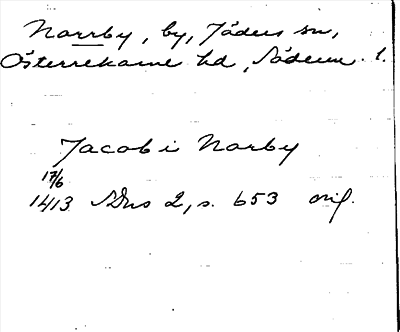 Norrby, by, Jäders sn,
Österrekarne hd, Söderm. l.
Jacob i Norby
17/6
1413 SDns 2, s. 653 orig.